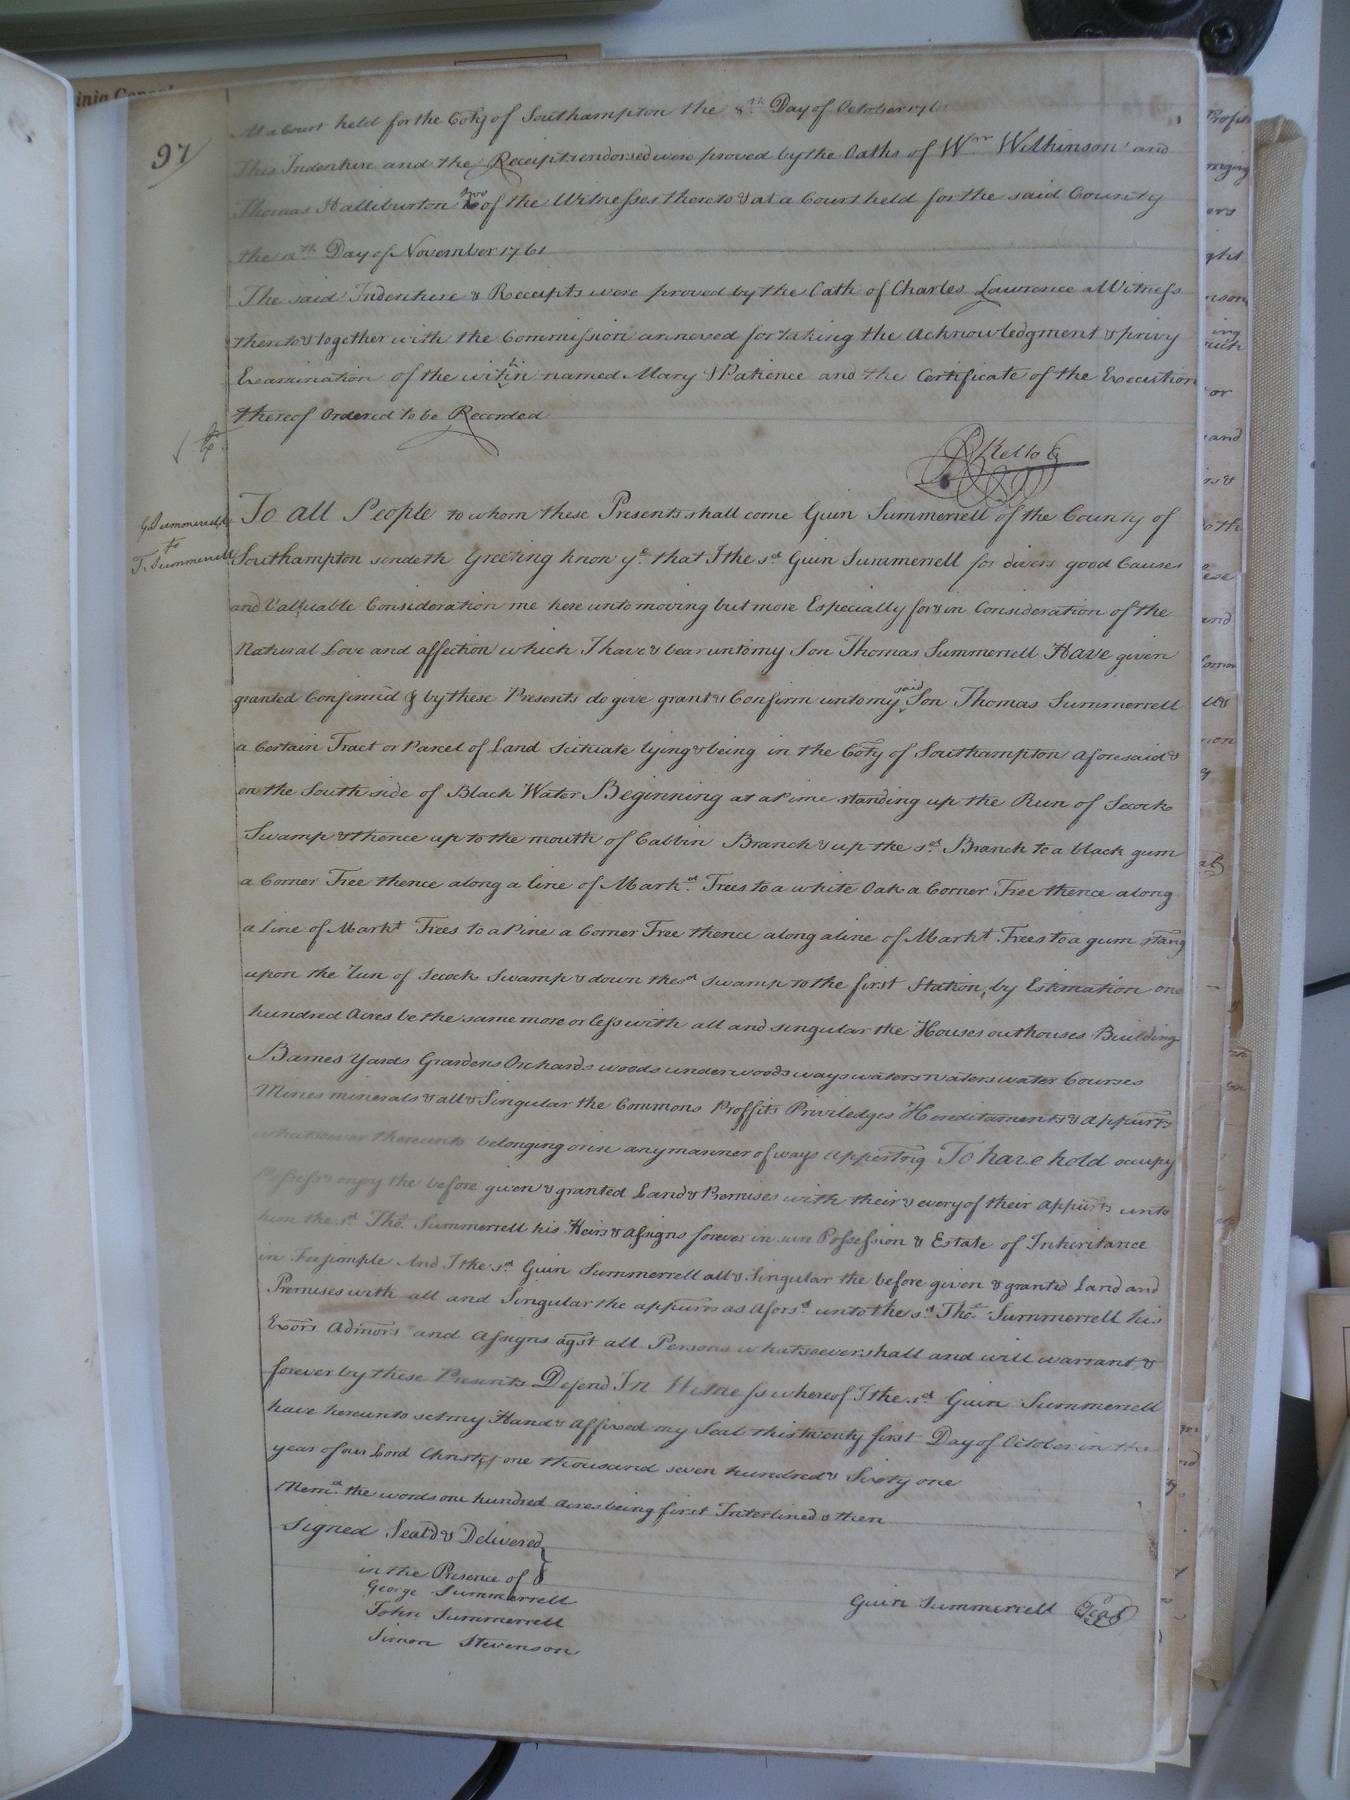 97
At a Court held for the Coty of Southampton the 8th Day of October 176
This Indenture and the Receipts endorsed were proved by the Oaths of Wm Wilkinson and
Thomas Halliburton two of the Witnesses thereto & at a Court held for the said County
the Day of November 1761
The said Indenture & Receipts were proved by the Oath of Charles Lawrence a Witness
thereto & together with the Commission annexed for taking the Acknowledgment & privy
Examination of the within named Mary & Patience and the Certificate of the Execution
thereof Ordered to be Recorded
R Kello C
G. Summerell
to
T. Summerrell
To all People to whom these Presents shall come Guin Summerrell of the County of
Southampton sendeth Greeting know ye that I the sd Guin Summerrell for divers good Causes
and Valuable Consideration me hereunto moving but more Especially for & in Consideration of the
Natural Love and affection which I have & bear unto my Son Thomas Summerrell Have given
granted Confirm'd & by these Presents do give grant & Confirm unto my said Son Thomas Summerrell
a Certain Tract or Parcel of Land scituate lying & being in the Coty of Southampton aforesaid &
on the South side of Black Water Beginning at a Pine standing up the Run of Secock
Swamp & thence up to the mouth of Cabbin Branch & up the sd Branch to a black gum
a Corner Tree thence along a line of Markd Trees to a white Oak a Corner Tree thence along
a Line of Markt Trees to a Pine a Corner Tree thence along a line of Markt Trees to a gum stang
upon the Run of Secock Swamp & down the sd swamp to the first Station, by Estimation one
hundred Acres be the same more or less with all and singular the Houses outhouses Building
Barnes Yards Grardens Orchards woods underwoods ways waters waters water Courses
Mines minerals & all & Singular the Commons Proffits Priviledges Hereditaments & appurts
whatsoever thereunto belonging or in any manner of ways appertng To have hold occupy
Possess & enjoy the before given & granted Land & Premises with their & every of their appurts unto
him the sd Thos Summerrell his Heirs & assigns forever in sure Possession & Estate of Inheritance
in Fee simple And I the sd Guin Summerrell all & Singular the before given & granted Land and
Premises with all and Singular the appurts as aforsd unto the sd Thos Summerrell his
Exors Admors and Assigns agst all Persons whatsoever shall and will warrant &
forever by these Presents Defend In Witness whereof I the sd Guin Summerrell
have hereunto set my Hand & Affixed my Seal this twenty first Day of October in the
year of our Lord Christ one thousand seven hundred & Sixty one
Memd the words one hundred acres being first Interlined & then
Signed Seald & Delivered
in the Presence of
George Summerrell
John Summerrell
Simon Stevenson
Guin Summerrell Seal